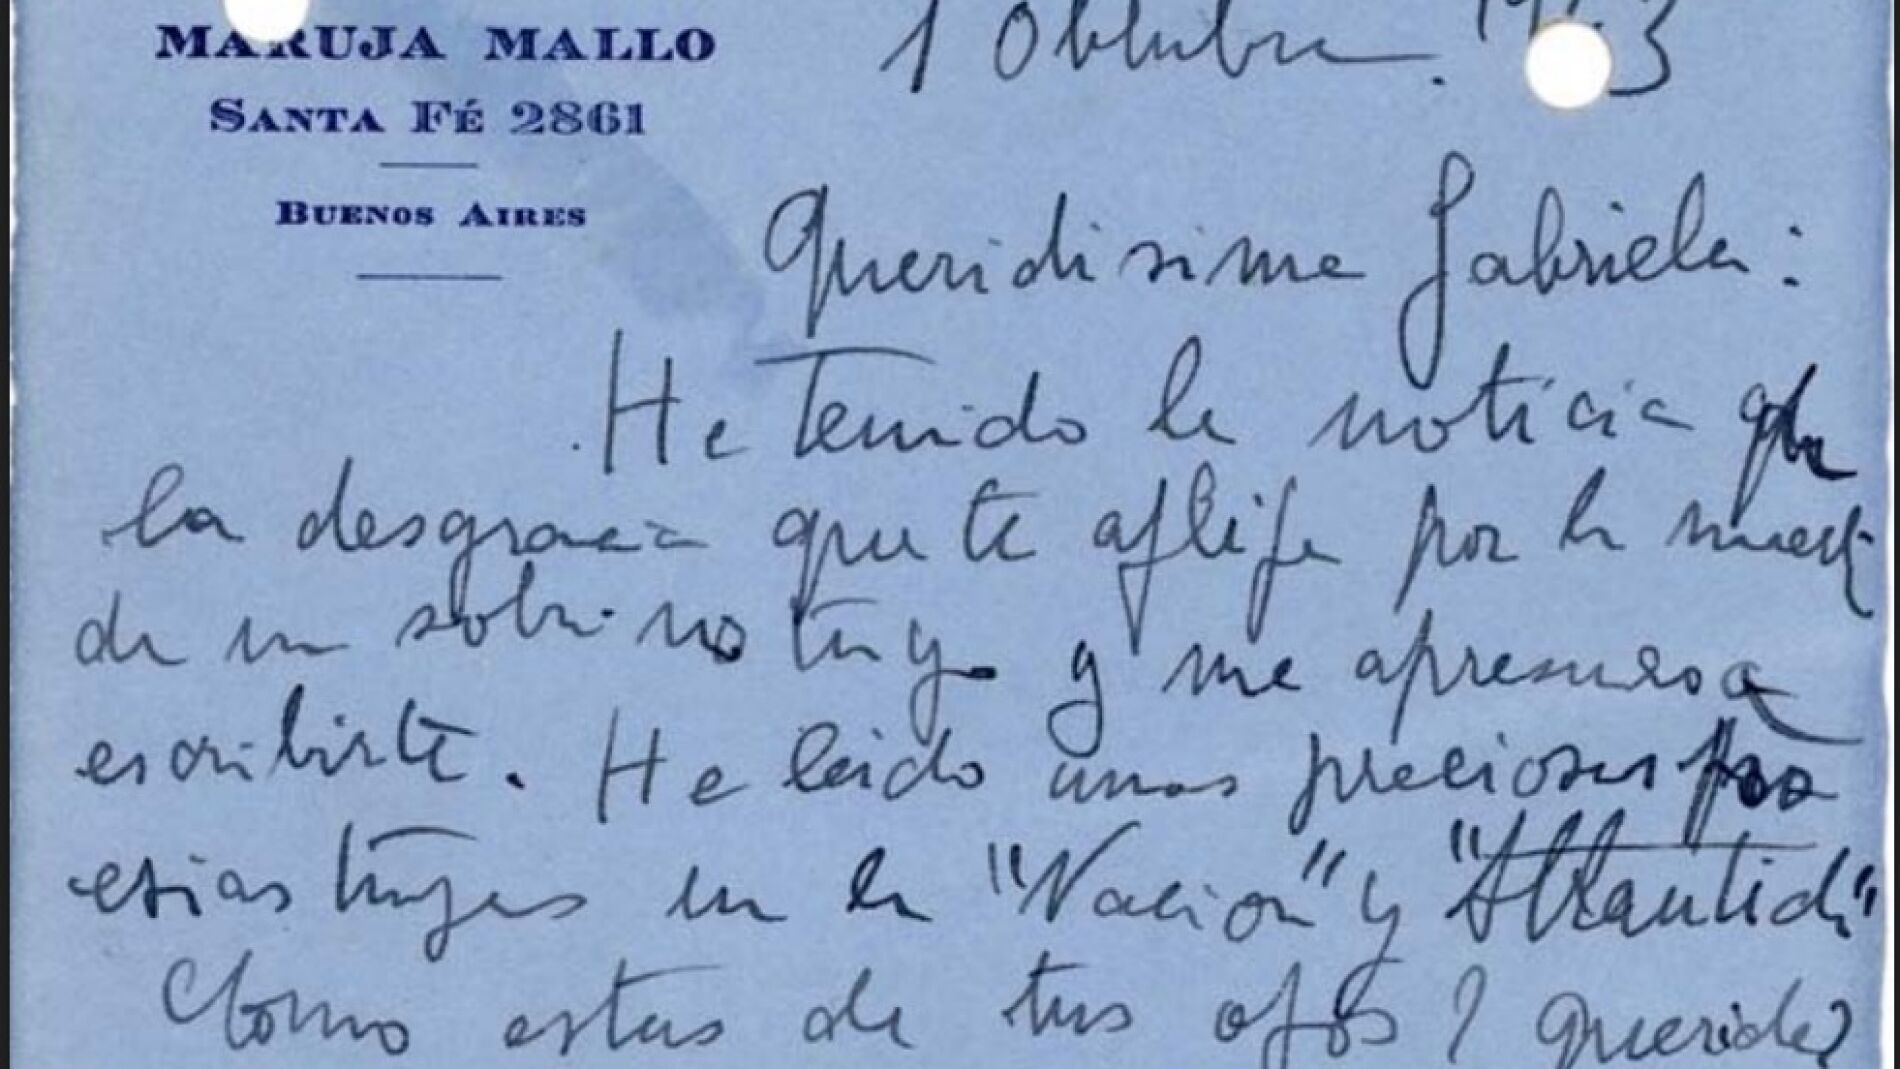 MARUJA MALLO
SANTA FÉ 2861
BUENOS AIRES
1 Obtubre. 19 3
Queridisima Gabriela:
He tenido la noticia
la desgracia que te aflije por la muerte
de un sobrino tuyo y me apresuro a
escribirte. He leido unas preciosas po
esias tuyas en la "Nacion" y "Atlantida"
Como estas de tus ojos? Querida?